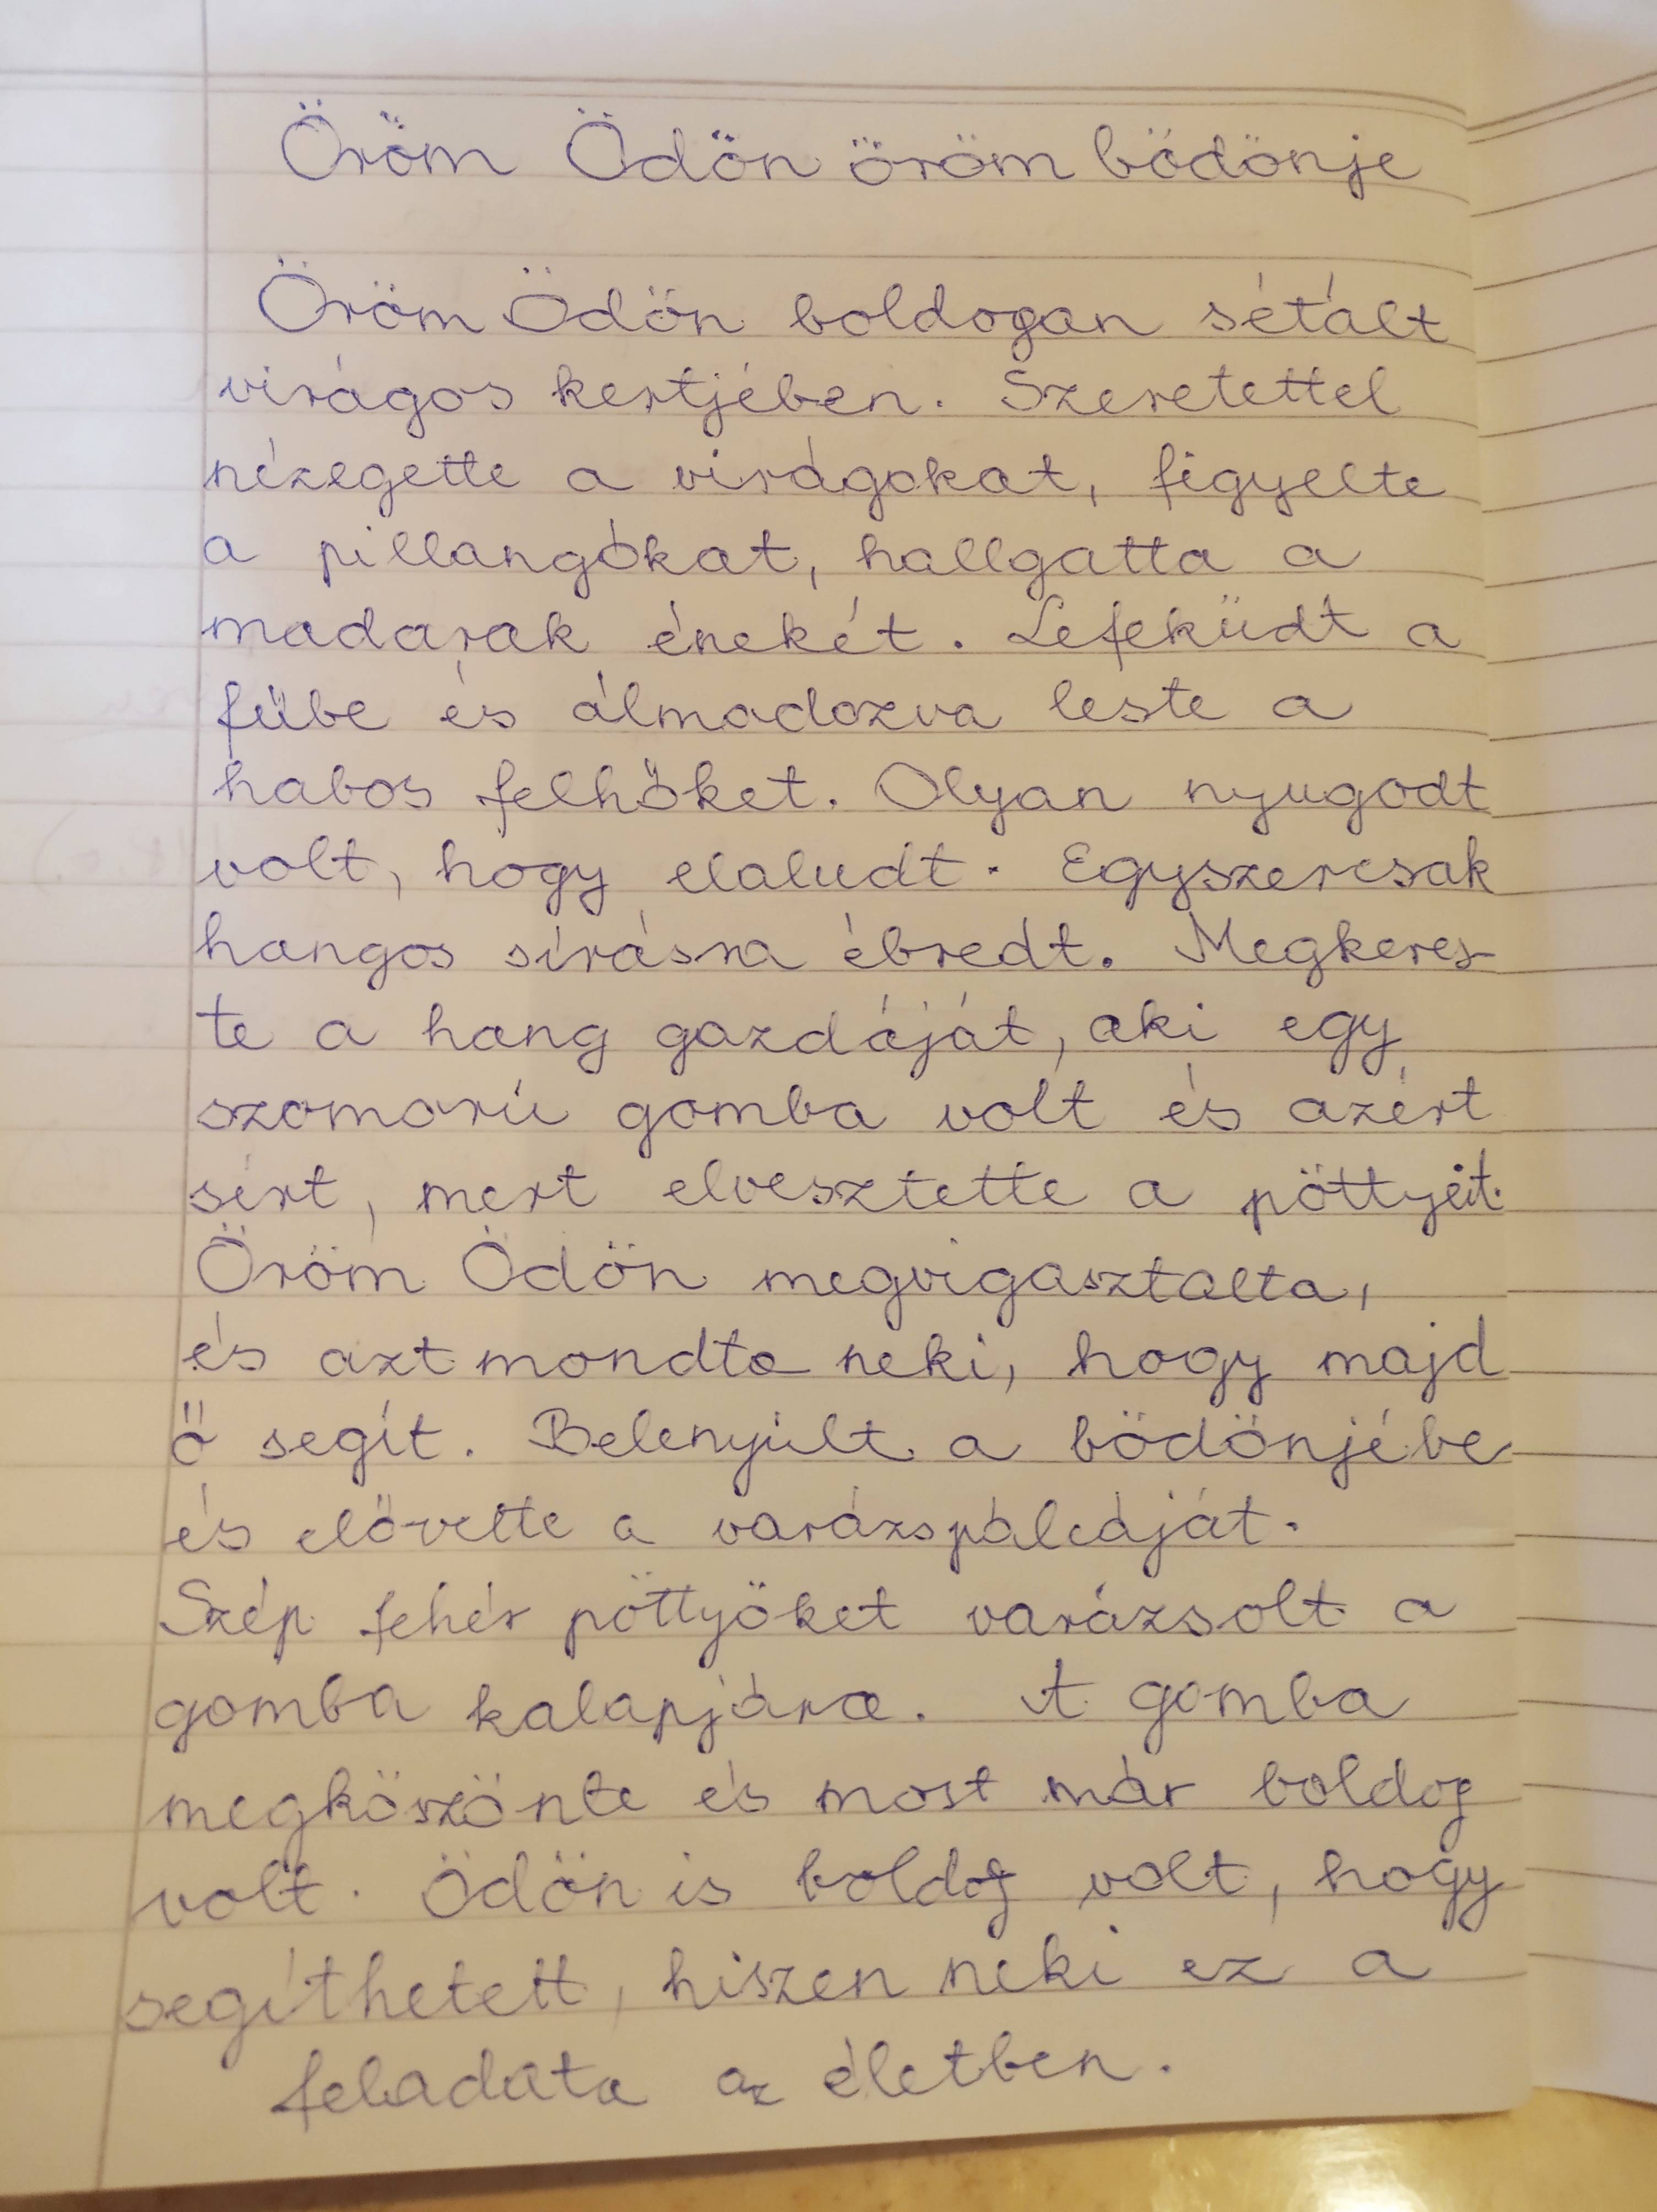 Öröm Ödön öröm bödönje
Öröm Ödön boldogan sétált
virágos kertjében. Szeretettel
nézegette a virágokat, figyelte
a pillangókat, hallgatta a
madarak énekét. Lefeküdt a
fűbe és álmadozva leste a
habos felhőket. Olyan nyugodt
volt, hogy elaludt. Egyszercsak
hangos sírásra ébredt. Megkeres-
te a hang gazdáját, aki egy
szomorú gomba volt és azért
sírt, mert elvesztette a pöttyeit.
Öröm Ödön megvigasztalta,
és azt mondta neki, hogy majd
ő segít. Belenyúlt a bödönjébe
és elővette a varázspálcáját.
Szép fehér pöttyöket varázsolt a
gomba kalapjára. A gomba
megköszönte és most már boldog
volt. Ödön is boldog volt, hogy
segíthetett, hiszen neki ez a
feladata az életben.